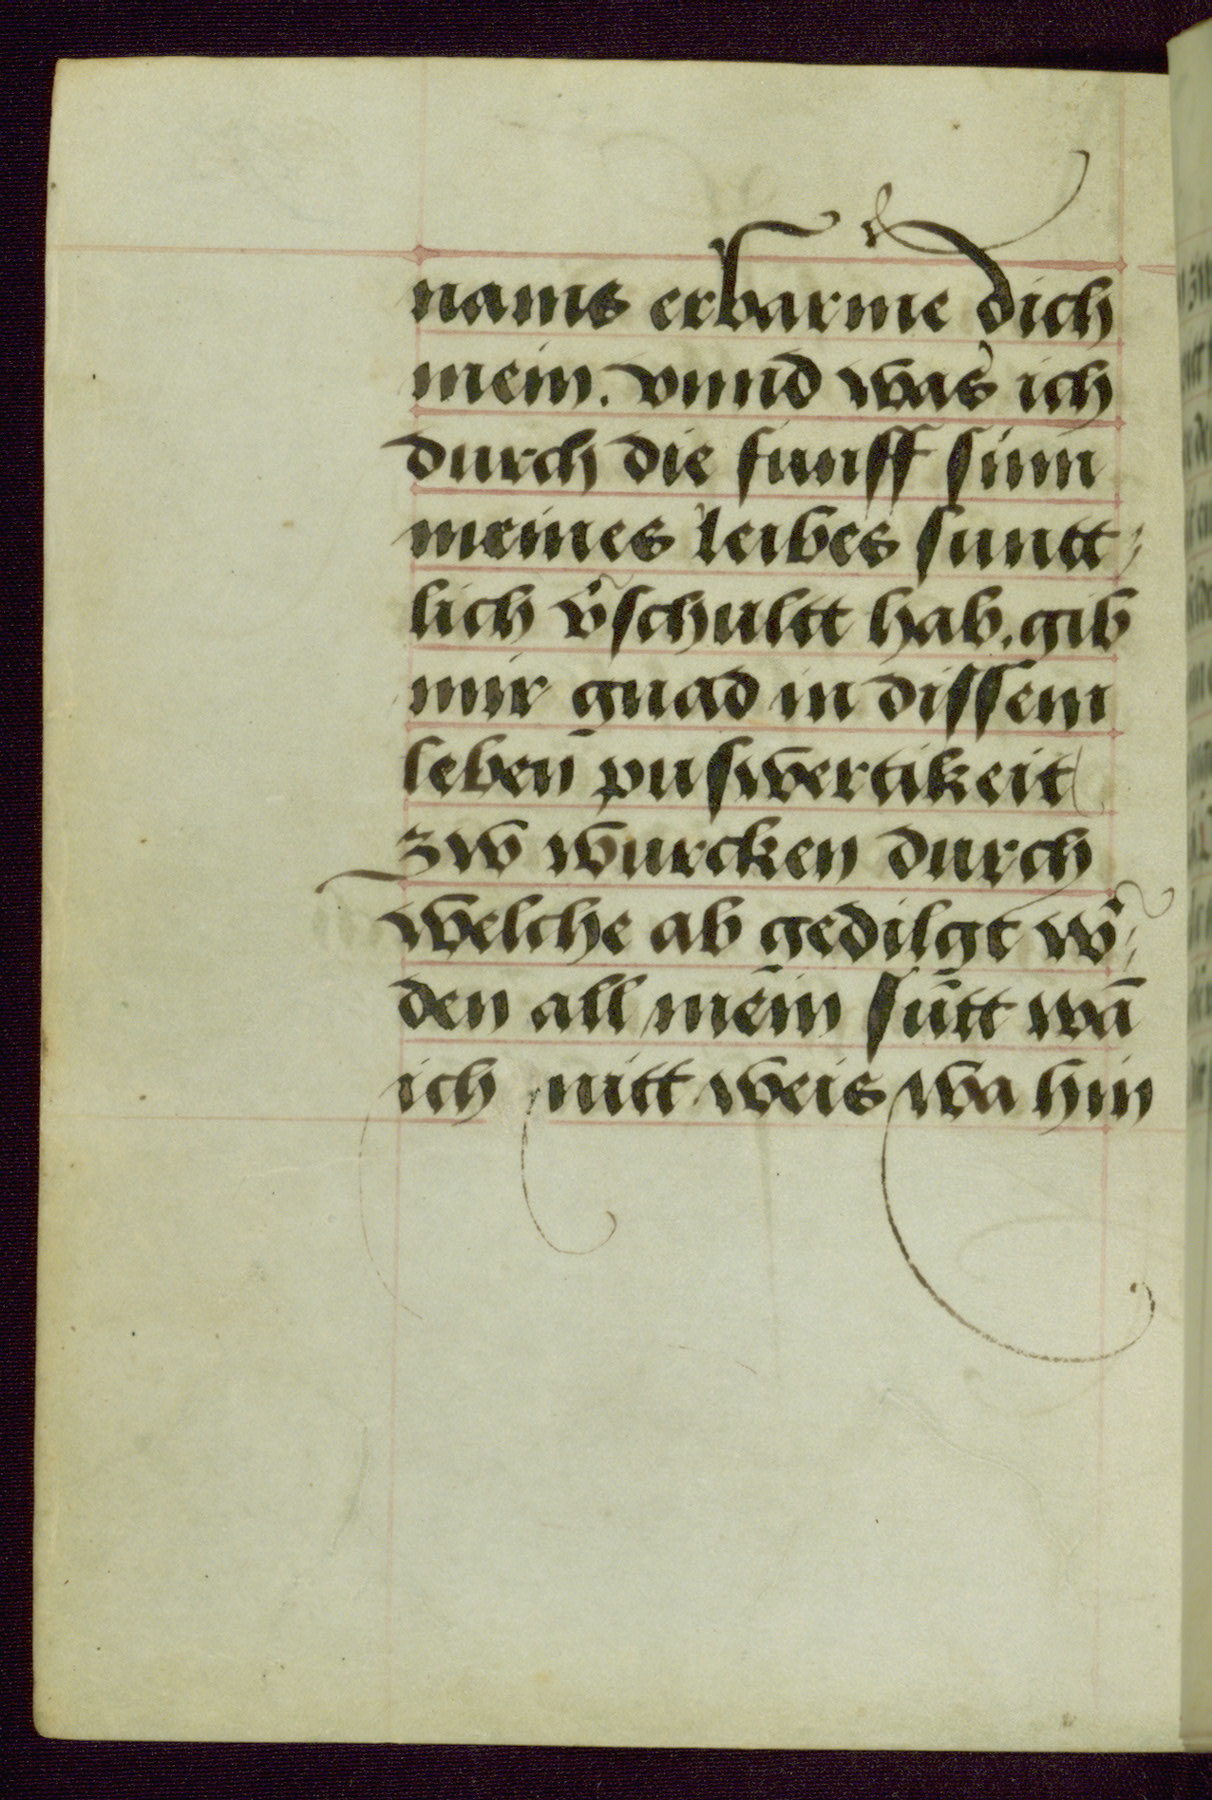 nams erbarme dich
mein. vnnd was ich
durch die funff sinn
meines leibes suntt⸗
lich v̉schultt hab. gib
mir gnad in dissem
leben̄ puswertikeit
zw wurcken durch
welche ab gedilgt w̉⸗
den all mein sūtt wā
ich nitt weis wa hin